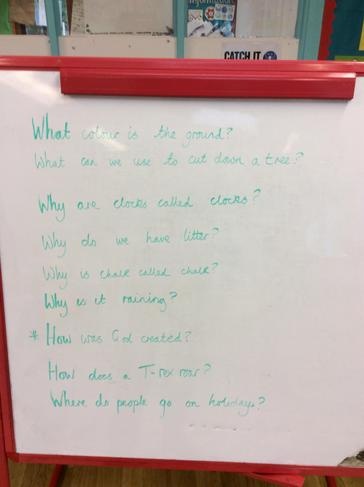 CATCH IT
What colour is the ground?
What can we use to cut down a tree?
Why are clocks called clocks?
Why do we have litter?
Why is chalk called chalk?
Why is it raining?
* How was God created?
How does a T-rex roar?
Where do people go on holidays?